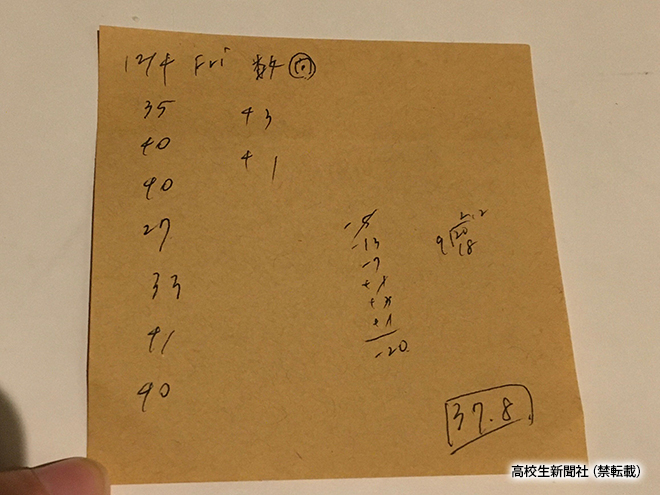 12/4 Fri 数
35 43
40 41
40
27
33
41
40
-5
-13
-7
+1
+3
+1
-20
2.2
9 20
18
37.8
高校生新聞社（禁転載）